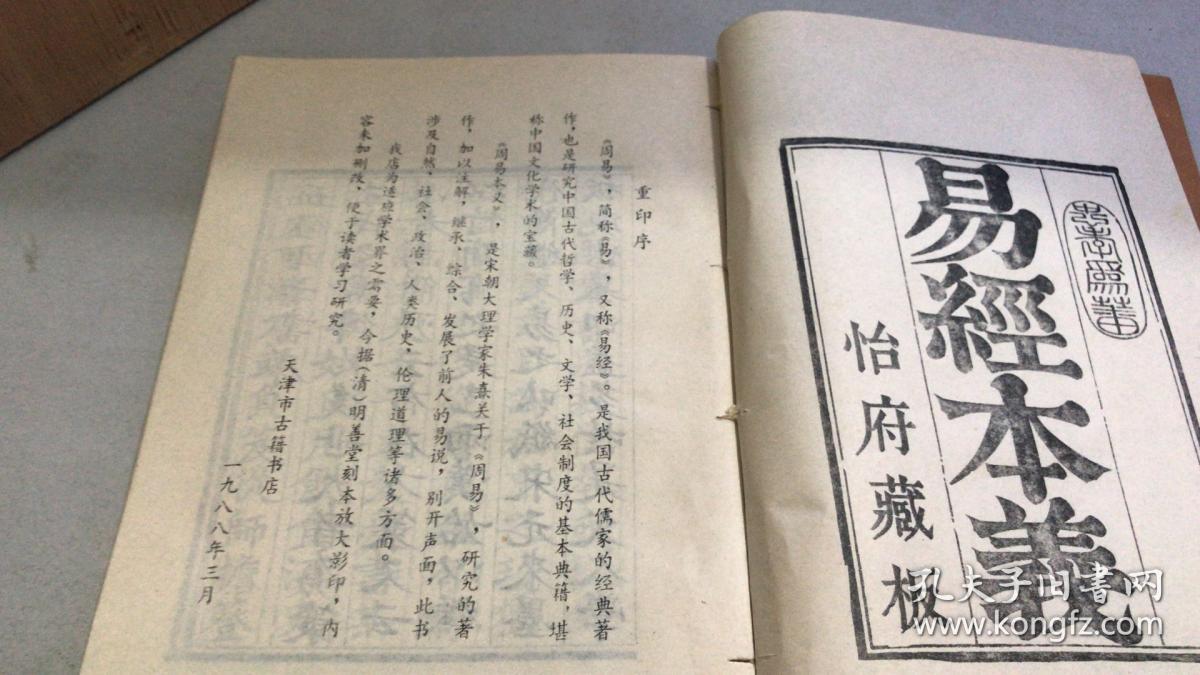 易經本義
怡府藏板
重印序
《周易》，简称《易》，又称《易经》。是我国古代儒家的经典著
作，也是研究中国古代哲学、历史、文学、社会制度的基本典籍，堪
称中国文化学术的宝藏。
《周易本义》，是宋朝大理学家朱熹关于《周易》，研究的著
作，加以注解，继承、综合、发展了前人的易说，别开声面，此书
涉及自然、社会、政治、人类历史，伦理道理等诸多方面。
我店为适应学术界之需要，今据(清)明善堂刻本放大影印，内
容未加删改，便于读者学习研究。
天津市古籍书店
一九八八年三月
孔夫子旧书网
www.kongfz.com